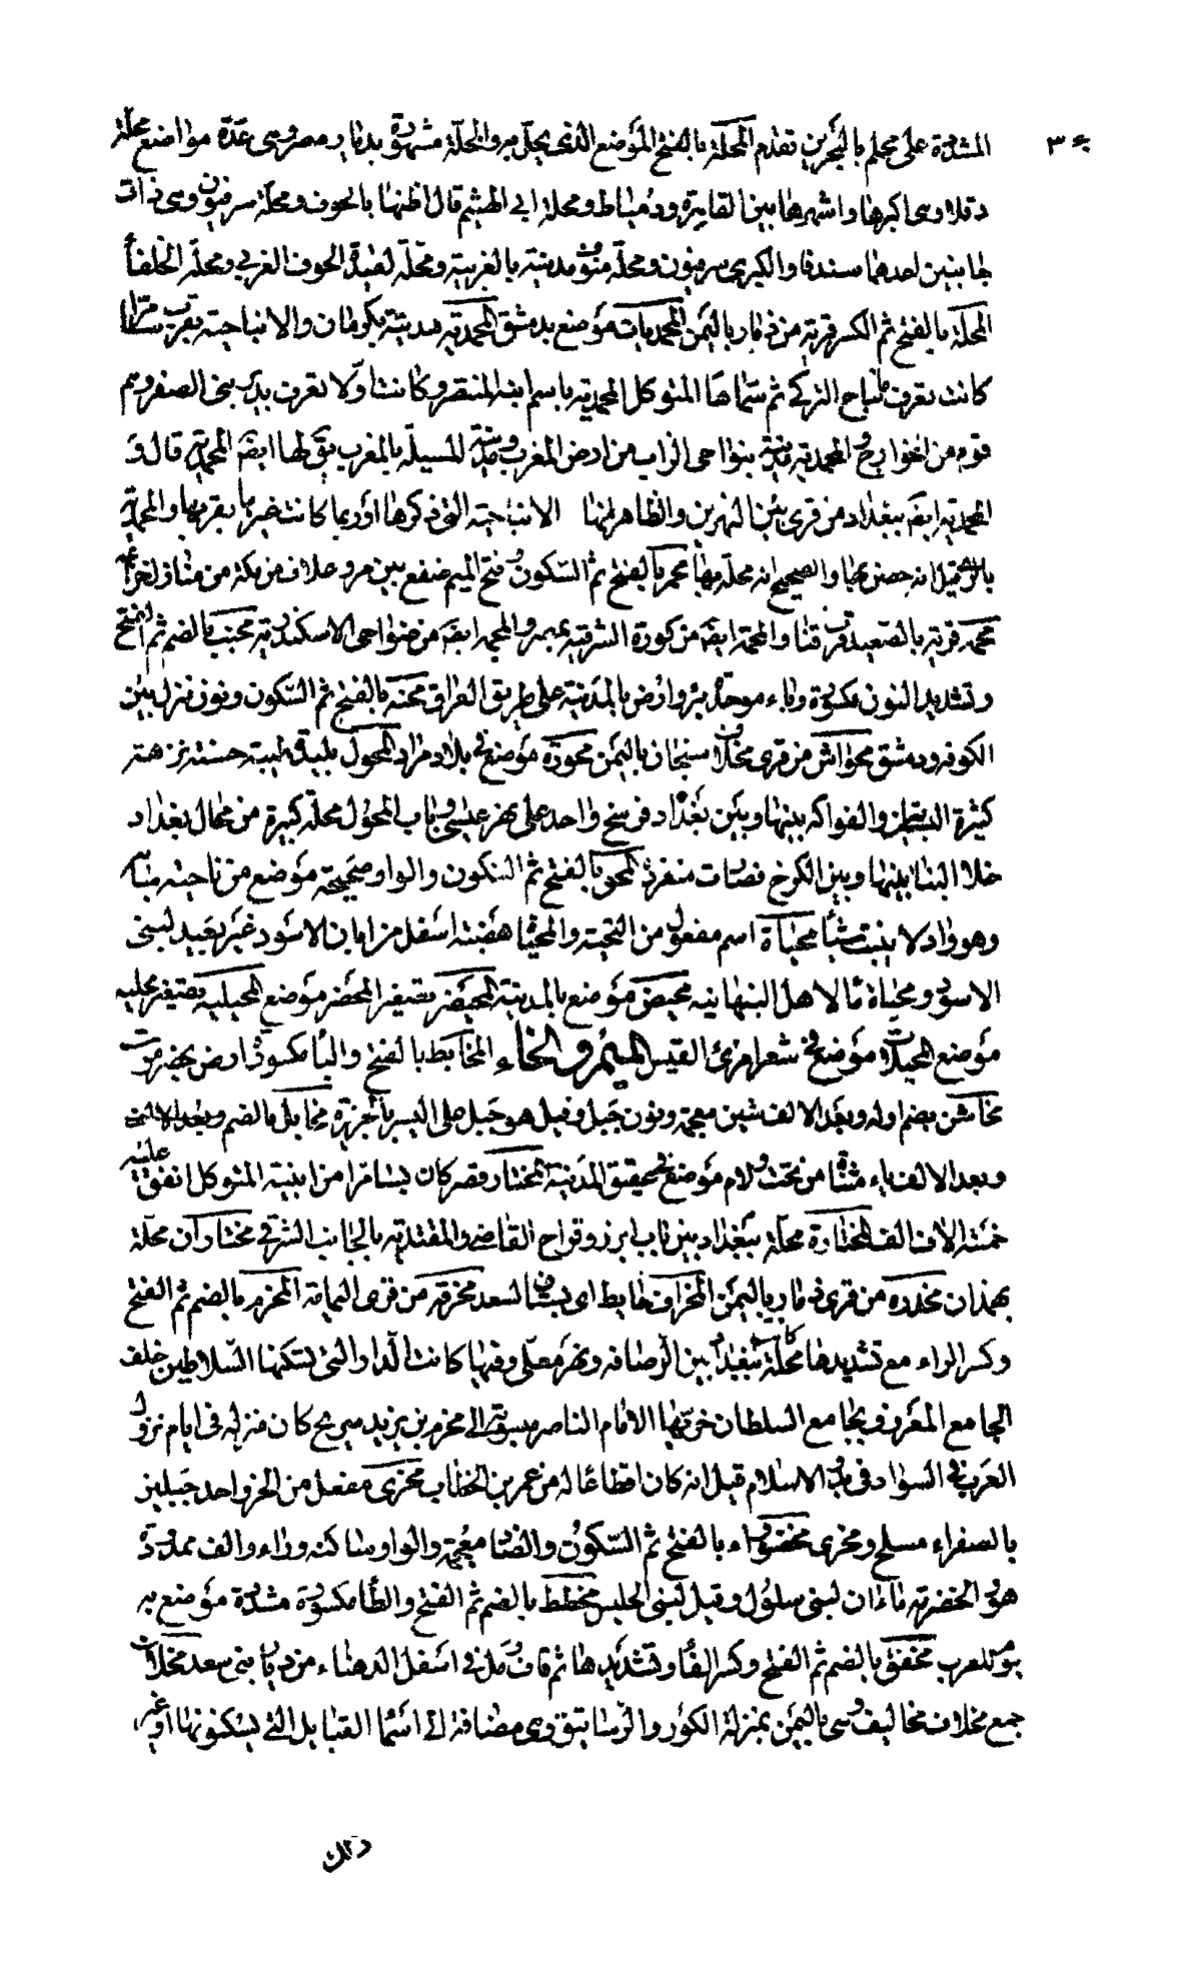 المشددة على محلم بالبحرين تقدم المحلة بالفتح الموضع الذي يحل به والمحلة مشهورة بديار مصر وهي عدة مواضع محلة
دقلا وهى اكبرها واشهرها بين القاهرة ودمياط ومحلة ابي الهيثم قال اظنها بالحوف ومحلة سرفيون وهى ذات
جانبين احدهما سندفا والكبرى سرفيون ومحلة منوف مدينة بالغربية ومحلة لقيدة الحوف الغربي ومحلة الخلفا
المحلة بالفتح ثم الكسر قرية من ذمار باليمن المحمديات موضع بدمشق المحمدية مدينة بكرمان والانباحية بقرب سامرا
كانت تعرف بايتاخ التركي ثم سماها المتوكل المحمدية باسم ابنه المنتصر وكانت اولا تعرف بدير ابى الصفر وهم
قوم من الخوارج والمحمدية مدينة بنواحى الزاب من ارض المغرب ومدينة المسيلة بالمغرب يق لها ايضا المحمدية قال و
المحمدية ايضا ببغداد من قرى بين النهرين والظاهر انها الانباحية التى ذكرها اذ ربما كانت خبر ما بقربها والمحمدية
بالرى قيل انه حصن بها والصحيح انه محلة بها محمر بالفتح ثم السكون وفتح الميم صقع بين مر وعلاف من مكة من منازل خزاعة
محمد قرية بالصعيد قرب قنا والمحمة ايضا من كورة الشرقية بمصر والمحمه ايضا من ضواحى الاسكندرية محنب بالضم ثم الفتح
وتشديد النون مكسورة وباء موحدة بئر وارض بالمدينة على طريق العراق محنه بالفتح ثم السكون ونون نزل بين
الكوفه ودمشق محواش من قرى مخلاف سنحان باليمن محورة موضع في بلاد مراد المحول بليدة طيبة حسنة نزهة
كثيرة البساتين والفواكه بينها وبين بغداد فرسخ واحد على نهر عيسى وباب المحول محلة كبيرة من محال بغداد
خلا البنا بينها وبين الكرخ فصارت منفردة المحو بالفتح ثم السكون والواو صحيحة موضع من ناحية ساية
وهو واد لا ينبت شيأ محياة اسم مفعول من التحية والمحياة هضبة اسفل من ابان الاسود غير بعيد لبنى
الاسود ومحياة ما لاهل النبهانية محيص موضع بالمدينة المحيضر تصغير المحضر موضع المحيلبية تصغير محلبية
موضع المحيلات موضع في شعر امرئ القيس الميم والخاء المخابط بالفتح والبا مكسورة ارض بحضرموت
مخاشن بضم اوله وبعد الالف شين معجمة ونون جبل وقيل هو جبل على اليسر بالجزيرة مخايل بالضم وبعد الالف
وبعد الالف ياء مثناة من تحت ولام موضع في عقيق المدينة المختار قصر كان بسامرا من ابنية المتوكل انفق عليه
خمسة الاف الف المختارة محلة ببغداد بين باب ابرز وقراح القاضى والمقتدية بالجانب الشرقي مختاران محلة
بهمدان مخدره من قرى ذمار باليمن المخراف حايط اى بستان لسعد مخرفة من قرى اليمامة المخرم بالضم ثم الفتح
وكسر الراء مع تشديدها محلة كانت ببغداد بين الرصافه ونهر معلى وفيها كانت الدار التى تسكنها السلاطين خلف
الجامع المعروف بجامع السلطان خربها الامام الناصر منسوبة الى مخرم بن يزيد بن شريح كان منزله في ايام نزول
العرب في السواد في بدء الاسلام قيل انه كان اقطاعا له من عمر بن الخطاب مخرى مفعل من الخر واحد جبلين
بالصفراء مسلح ومخرى مخضوراء بالفتح ثم السكون والضاد معجمة والواو ساكنه وراء والف ممدودة
هو الخضرية ماءان لبنى سلول وقيل لبنى الحليس مخطط بالضم ثم الفتح والطا مكسورة مشددة موضع به
يوم للعرب مخفق بالضم ثم الفتح وكسر الفا وتشديدها ثم قاف رمل في اسفل الدهناء من ديار بنى سعد مخلاف
جمع مخلاف مخاليف وهى باليمن بمنزلة الكور والرساتيق وهى مضافة الى اسما القبايل التى يسكنونها او غير
ذلك